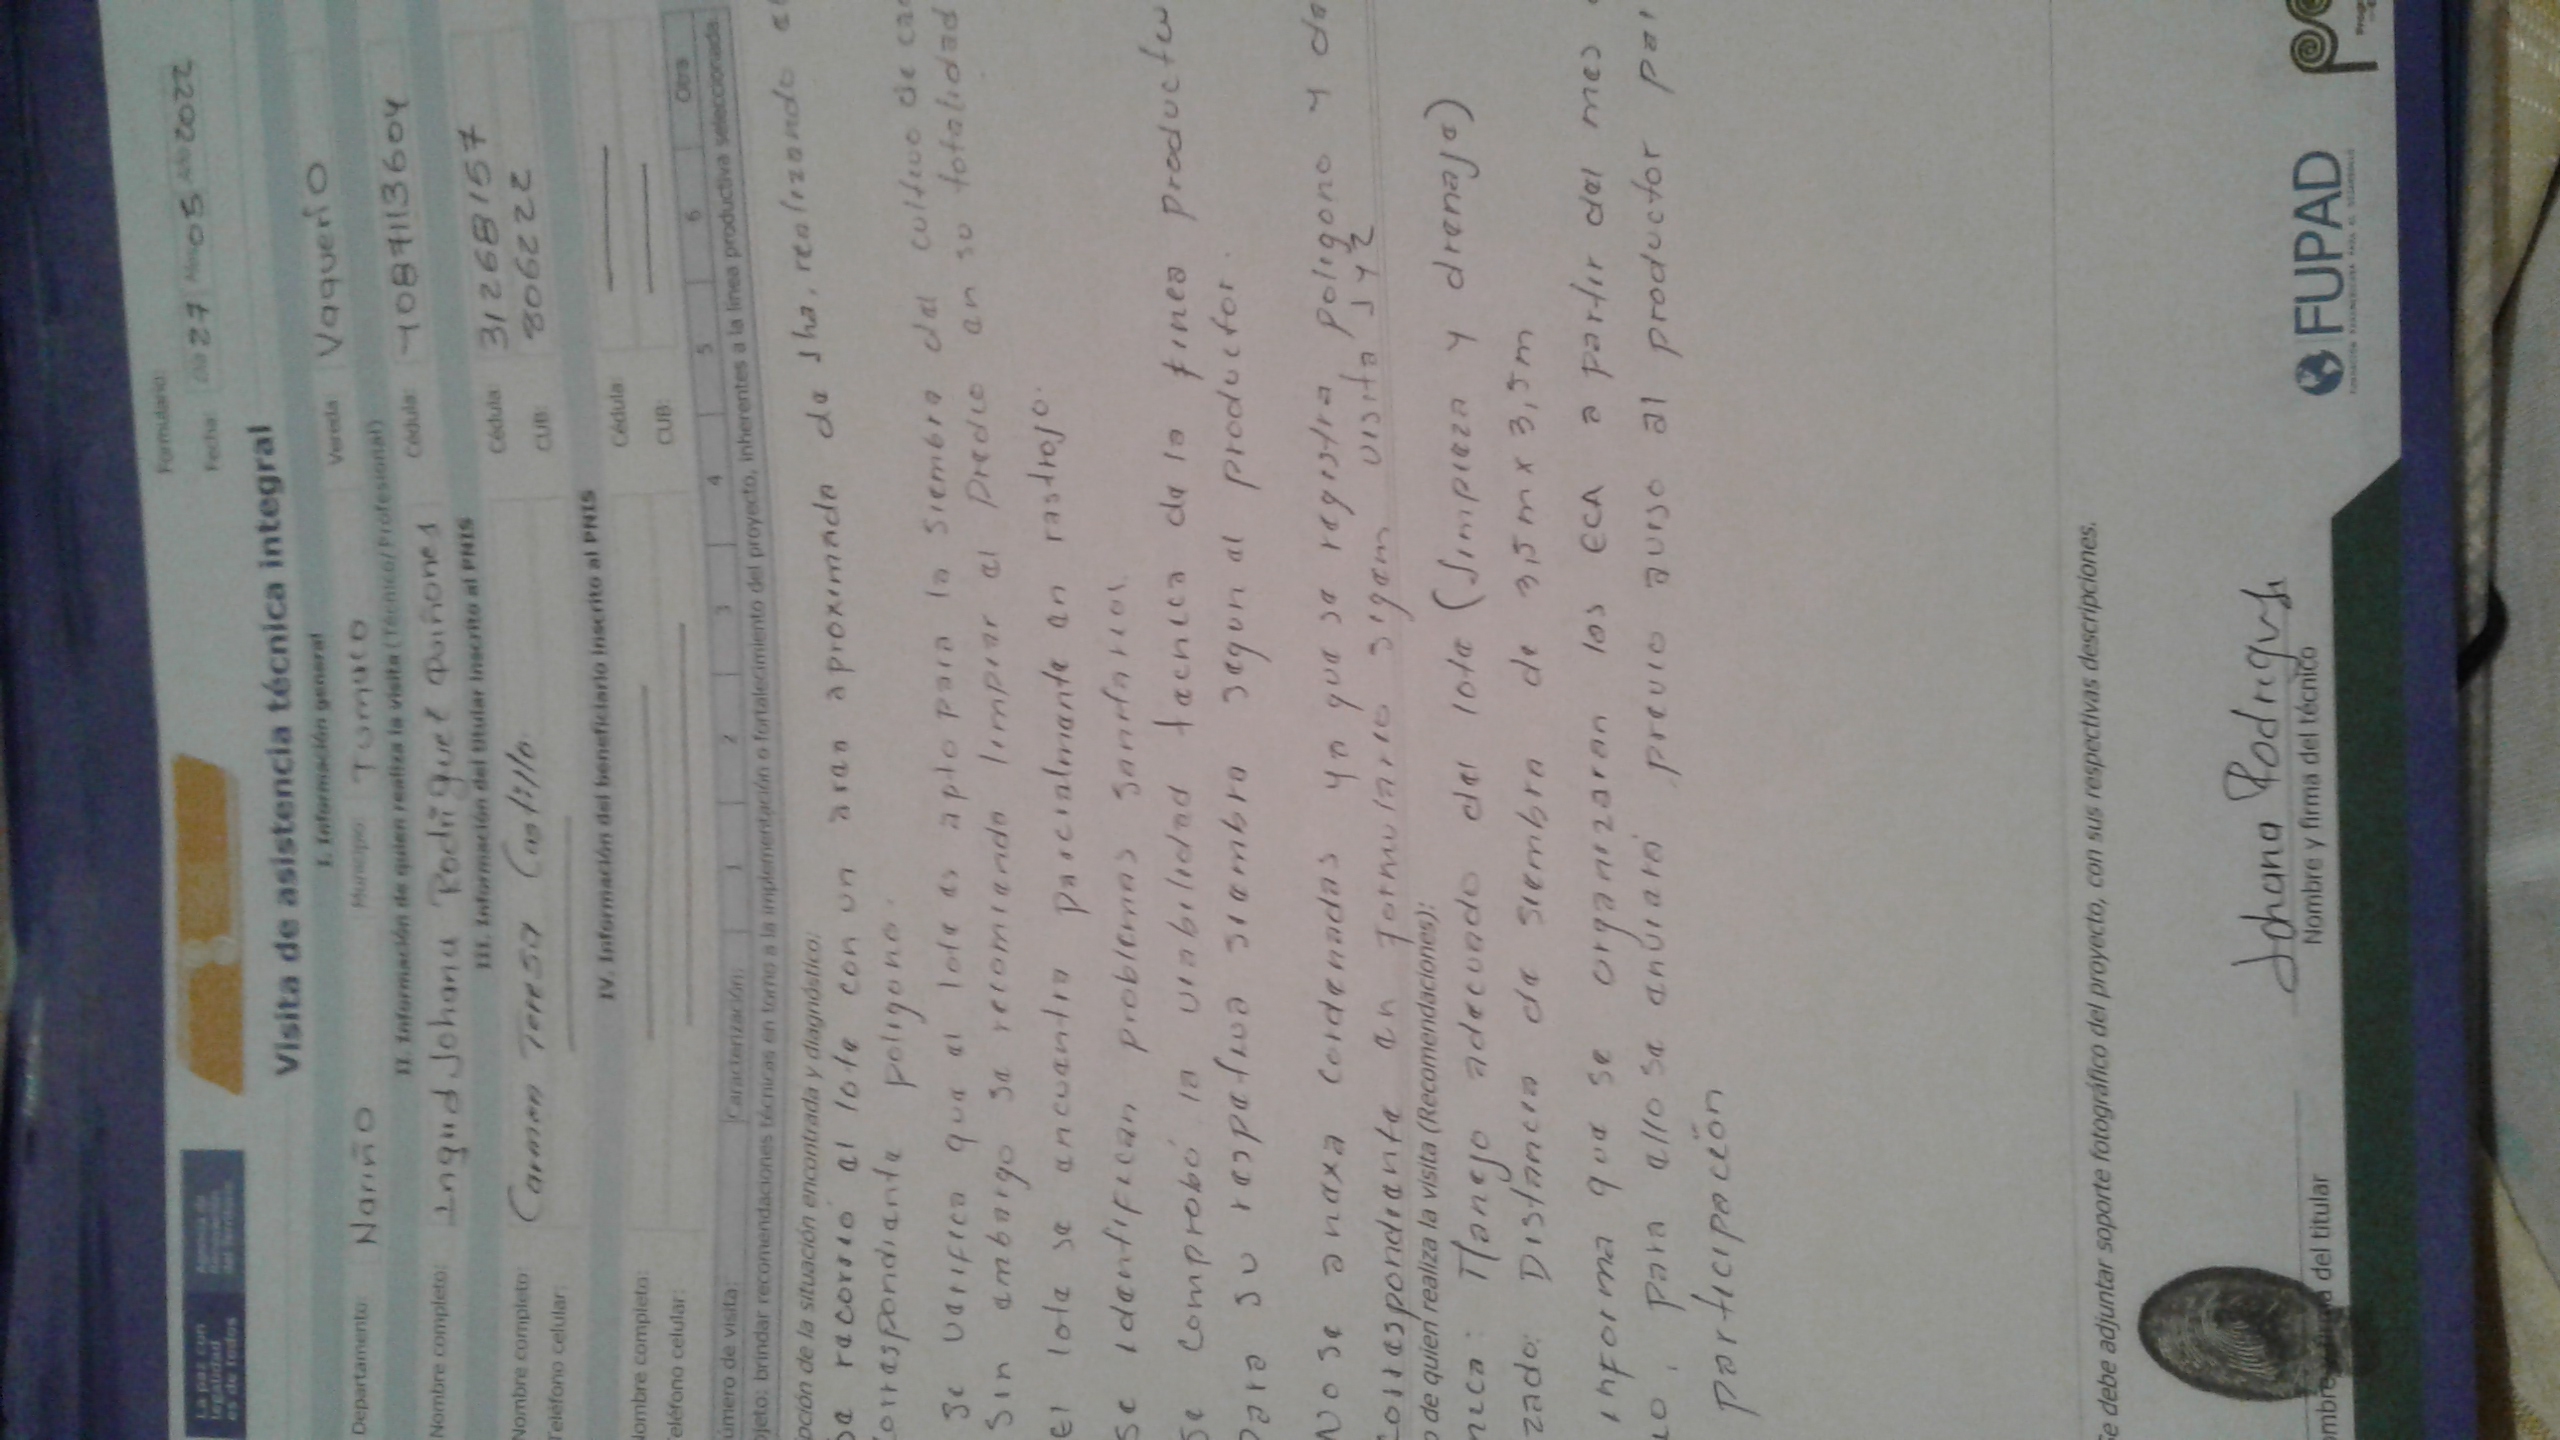 Formulario:
Fecha: Día 27 Mes 05 Año 2022
La paz con
legalidad
es de todos
Visita de asistencia técnica integral
I. Información general
Departamento: Nariño Municipio: Tumaco Vereda: Vaquerio
II. Información de quien realiza la visita (Técnico/Profesional)
Nombre completo: Ingrid Johana Rodriguez Quiñones Cédula: 1087113604
III. Información del titular inscrito al PNIS
Nombre completo: Carmen Teresa Castillo. Cédula: 31268157
Teléfono celular: CUB: 806222
IV. Información del beneficiario inscrito al PNIS
Nombre completo: Cédula:
Teléfono celular: CUB:
úmero de visita: Caracterización: 1 2 3 4 5 6 Otra
bjeto: brindar recomendaciones técnicas en torno a la implementación o fortalecimiento del proyecto, inherentes a la línea productiva seleccionada
pción de la situación encontrada y diagnóstico:
se recorrio el lote con un area aproximada de 5ha, realizando el
correspondiente poligono.
Se verifica que el lote es apto para la siembra del cultivo de cac
Sin embargo se recomienda limpiar el predio en su totalidad
El lote se encuentra parcialmente en rastrojo.
Se identifican problemas sanitarios
Se comprobó la viabilidad tecnica de la linea productiv
para su respectiva siembra segun el productor.
No se anexa cordenadas ya que se registra poligono y da
correspondiente en formulario sigem visita 1 y 2
o de quien realiza la visita (Recomendaciones):
nica: Manejo adecuado del lote (Limpieza y drenaje)
zado: Distancia de siembra de 3,5m x 3,5m
informa que se organizaran las ECA a partir del mes
para ello se enviará previo aviso al productor par
participación
Se debe adjuntar soporte fotográfico del proyecto, con sus respectivas descripciones.
Johana Rodriguez
ombre del titular
Nombre y firma del técnico
FUPAD